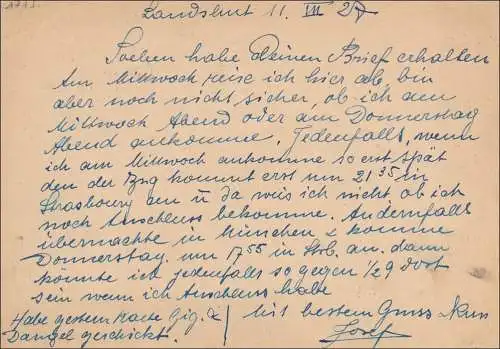 Landshut 11. III 27
Soeben habe Deinen Brief erhalten
Am Mittwoch reise ich hier ab bin
aber noch nicht sicher, ob ich am
Mittwoch Abend oder am Donnerstag
Abend ankomme. Jedenfalls, wenn
ich am Mittwoch ankomme so erst spät
den der Zug kommt erst um 21 35 in
Strasbourg an u da weis ich nicht ob ich
noch Anschluss bekomme. Andernfalls
übernachte in München & komme
Donnerstag um 17 55 in Strb. an. dann
könnte ich jedenfalls so gegen ½ 9 dort
sein wenn ich Anschluss habe
Habe gestern Karte Zig. & / Mit bestem Gruss
geschickt. Josef